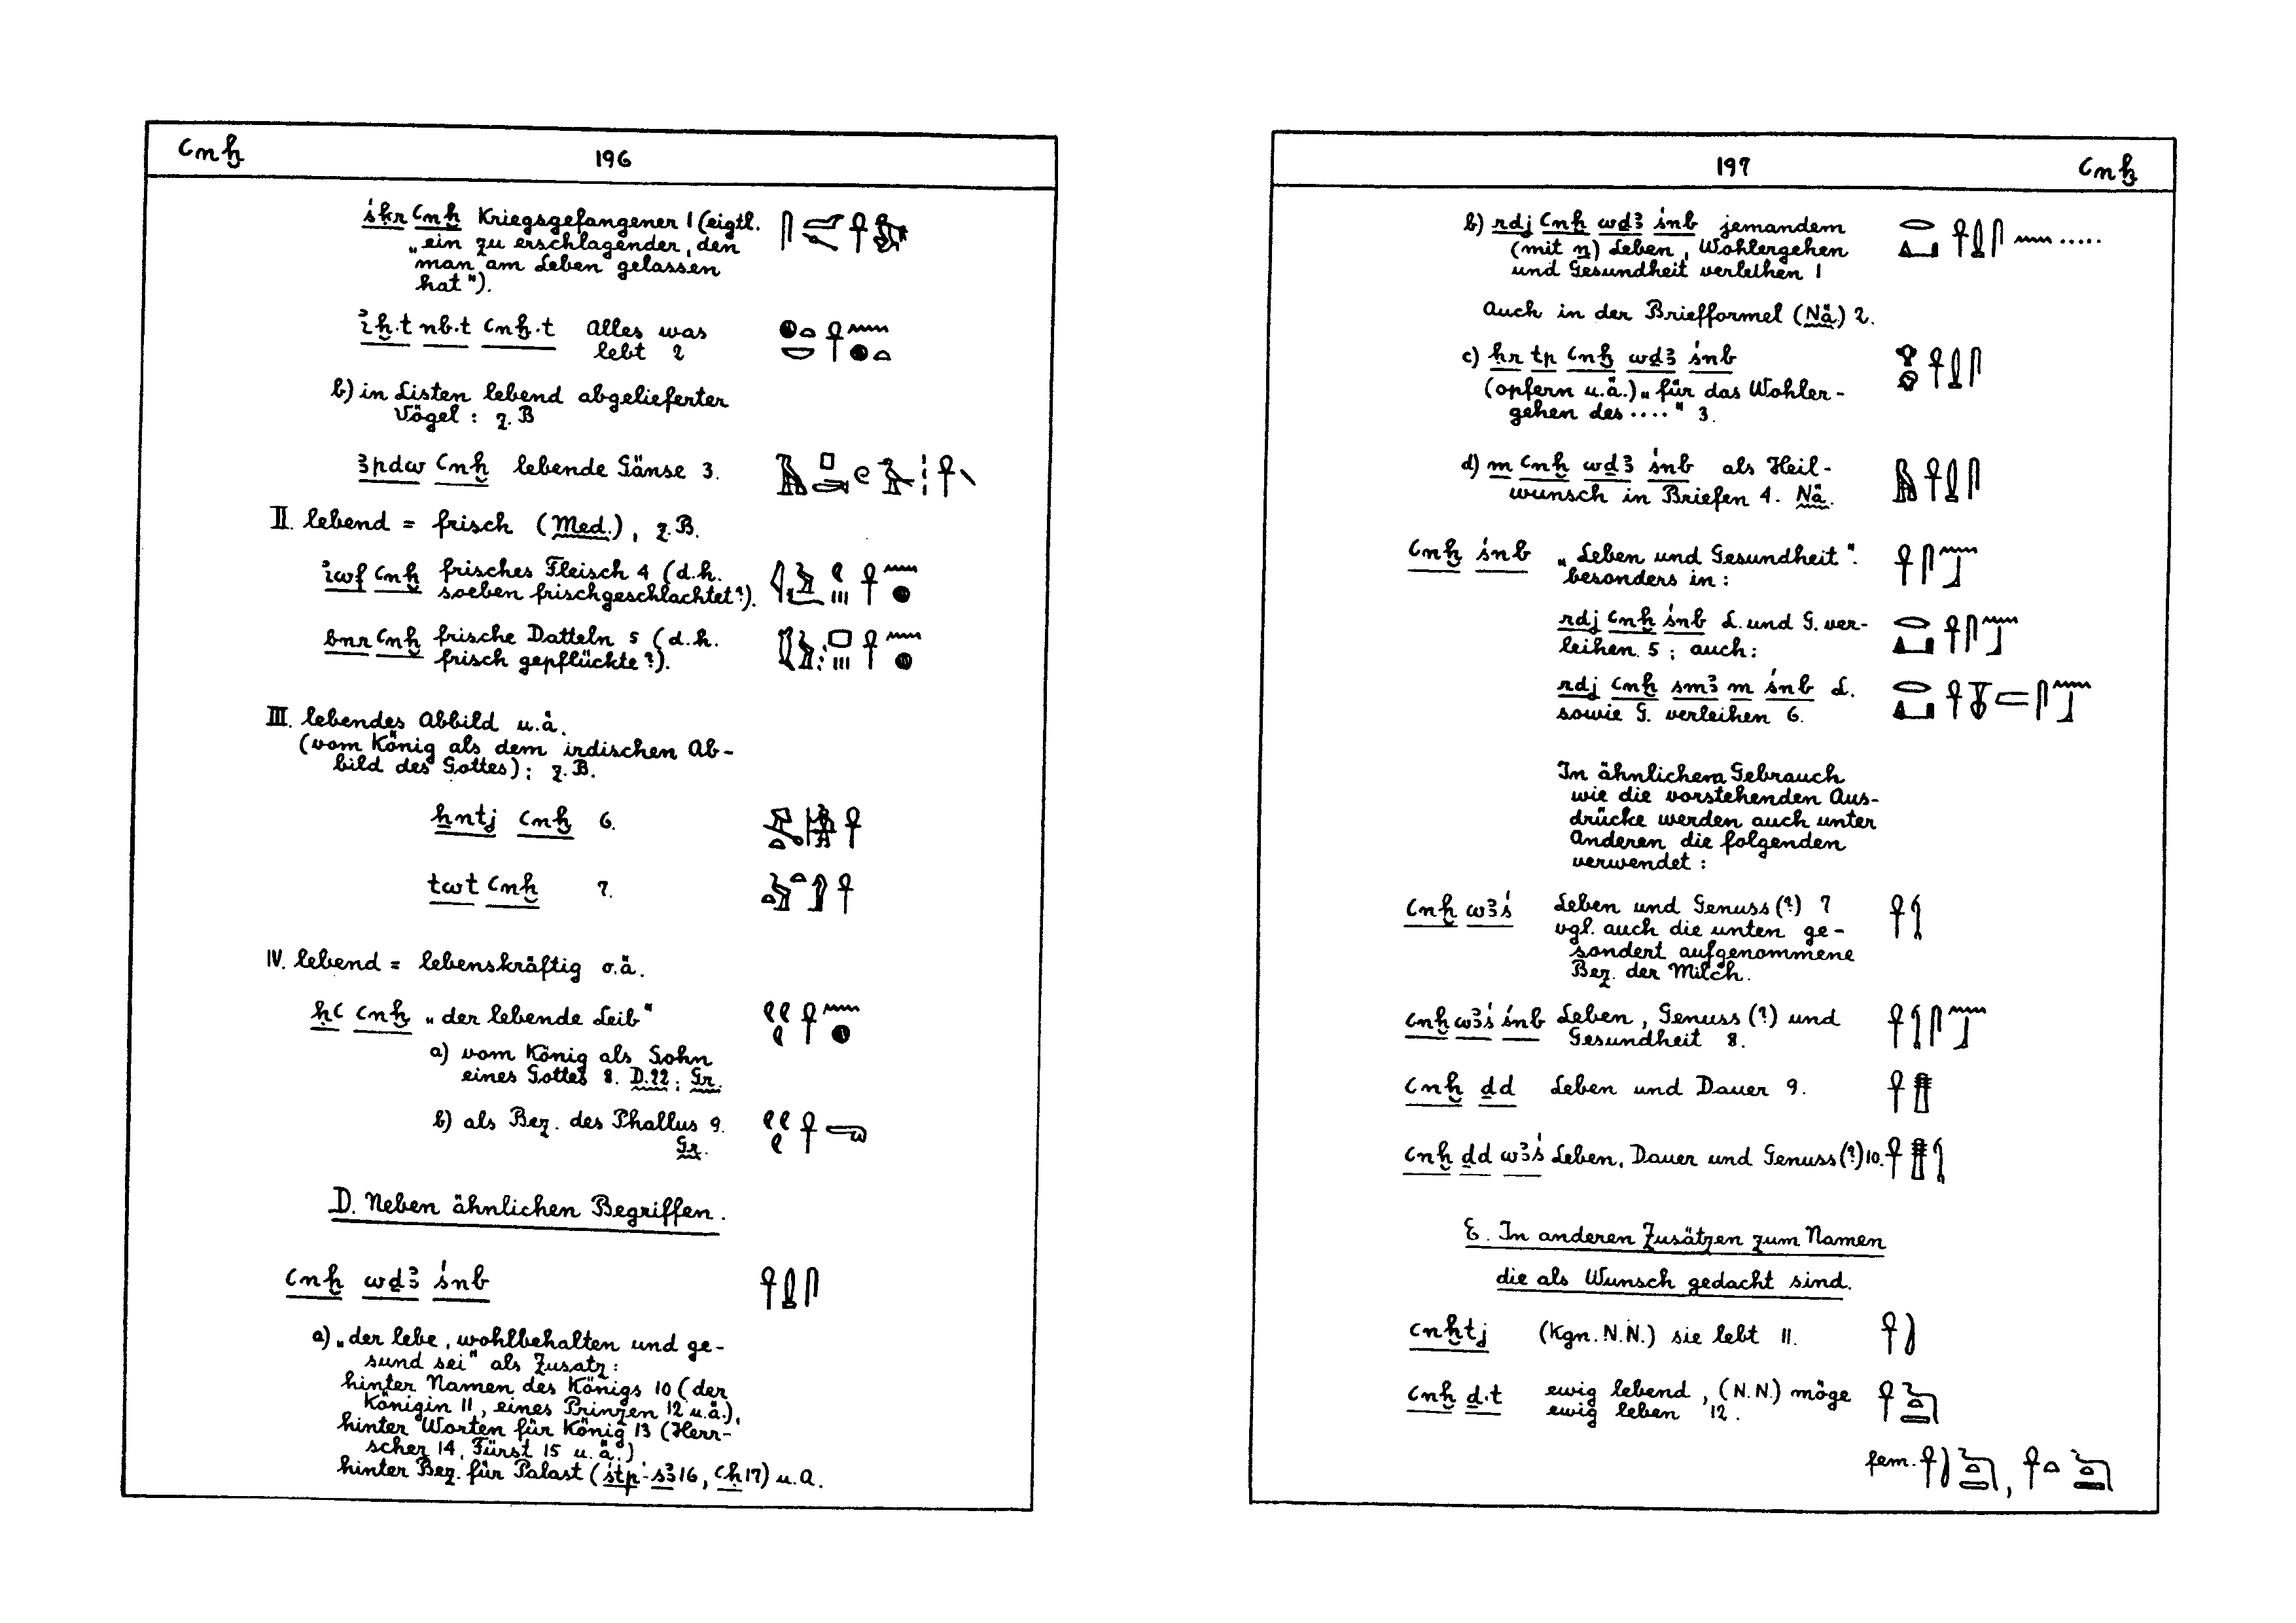 ꜥnḫ
196
śḳr ꜥnḫ Kriegsgefangener 1 (eigtl.
„ein zu erschlagender, den
man am Leben gelassen
hat“).
iḫ·t nb·t ꜥnḫ·t Alles was
lebt 2
b) in Listen lebend abgelieferter
Vögel: z.B
ꜣpdw ꜥnḫ lebende Gänse 3.
II. lebend = frisch (Med.), z.B.
iwf ꜥnḫ frisches Fleisch 4 (d.h.
soeben frischgeschlachtet?).
bnr ꜥnḫ frische Datteln 5 (d.h.
frisch gepflückte?).
III. lebendes Abbild u.ä.
(vom König als dem irdischen Ab-
bild des Gottes); z.B.
ḫntj ꜥnḫ 6.
twt ꜥnḫ 7.
IV. lebend = lebenskräftig o.ä.
ḥꜥ ꜥnḫ „der lebende Leib“
a) vom König als Sohn
eines Gottes 8. D.22; Gr.
b) als Bez. des Phallus 9.
Gr.
D. Neben ähnlichen Begriffen.
ꜥnḫ wḏꜣ śnb 𓋹𓍑𓋴
a) „der lebe, wohlbehalten und ge-
sund sei“ als Zusatz:
hinter Namen des Königs 10 (der
Königin 11, eines Prinzen 12 u.ä.),
hinter Worten für König 13 (Herr-
scher 14, Fürst 15 u.ä.)
hinter Bez. für Palast (śtp-sꜣ 16, ꜥḥ 17) u.a.
197
ꜥnḫ
b) rdj ꜥnḫ wḏꜣ śnb jemandem
(mit n) Leben, Wohlergehen
und Gesundheit verleihen 1
Auch in der Briefformel (Nä) 2.
c) ḥr tp ꜥnḫ wḏꜣ śnb
(opfern u.ä.) „für das Wohler-
gehen des ....“ 3.
d) m ꜥnḫ wḏꜣ śnb als Heil-
wunsch in Briefen 4. Nä.
ꜥnḫ śnb „Leben und Gesundheit“.
besonders in:
rdj ꜥnḫ śnb L. und G. ver-
leihen 5; auch:
rdj ꜥnḫ smꜣ m śnb L.
sowie G. verleihen 6.
In ähnlichem Gebrauch
wie die vorstehenden Aus-
drücke werden auch unter
Anderen die folgenden
verwendet:
ꜥnḫ wꜣś Leben und Genuss (?) 7 𓋹𓌀
vgl. auch die unten ge-
sondert aufgenommene
Bez. der Milch.
ꜥnḫ wꜣś śnb Leben, Genuss (?) und
Gesundheit 8.
ꜥnḫ ḏd Leben und Dauer 9. 𓋹𓊽
ꜥnḫ ḏd wꜣś Leben, Dauer und Genuss (?) 10. 𓋹𓊽𓌀
E. In anderen Zusätzen zum Namen
die als Wunsch gedacht sind.
ꜥnḫtj (Kgn. N.N.) sie lebt 11.
ꜥnḫ ḏ·t ewig lebend, (N.N.) möge
ewig leben 12.
fem.